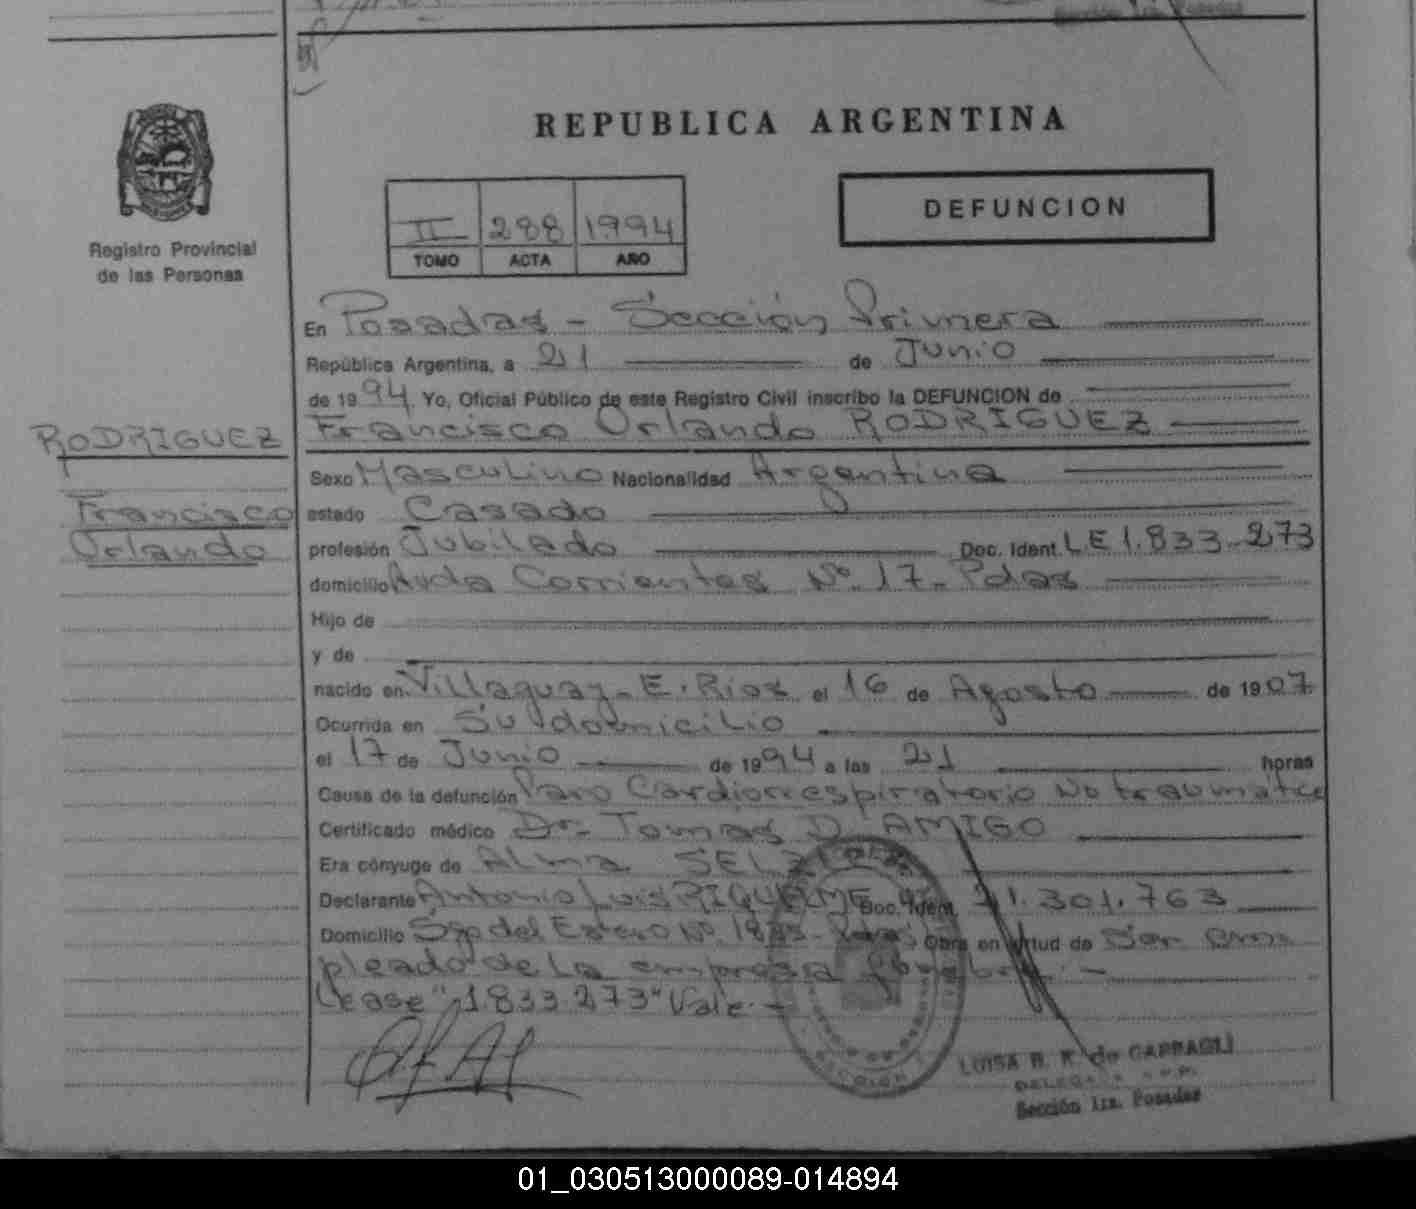 REPUBLICA ARGENTINA
Registro Provincial
de las Personas
II 288 1994
TOMO ACTA AÑO
DEFUNCION
En Posadas - Sección Primera
República Argentina, a 21 de Junio
de 1994, Yo, Oficial Público de este Registro Civil inscribo la DEFUNCION de
Francisco Orlando RODRIGUEZ
RODRIGUEZ
Francisco
Orlando
Sexo Masculino Nacionalidad Argentina
estado Casado
profesión Jubilado Doc. Ident. LE 1.833.273
domicilio Avda Corrientes Nº 17- Pdas
Hijo de
y de
nacido en Villaguay- E. Rios el 16 de Agosto de 1907
Ocurrida en Su domicilio
el 17 de Junio de 1994 a las 21 horas
Causa de la defunción Paro Cardiorrespiratorio No traumático
Certificado médico Dr. Tomas D'AMIGO
Era cónyuge de Alma
Declarante Antonio Luis RIQUELME Doc. Ident. 21.301.763
Domicilio Sgo del Estero Nº Obra en virtud de Ser em
pleado de la empresa
Lease "1833.273" Vale.-
LUISA R. K. de
Sección 1ra. Posadas
01_030513000089-014894